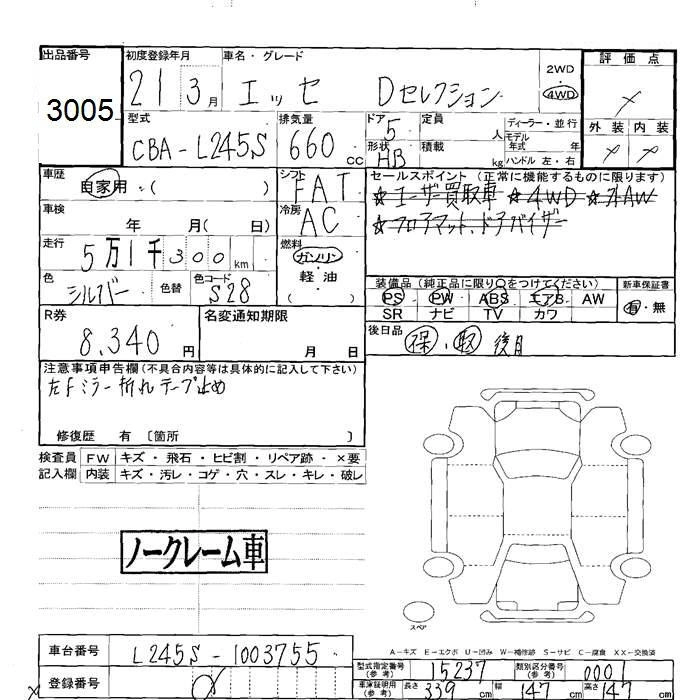 出品番号 初度登録年月 車名・グレード 評価点
3005 21 3月 エッセ Dセレクション 2WD・4WD
型式 排気量 ドア 定員 ディーラー・並行 外装 内装
CBA-L245S 660cc 5 人 モデル年式 年
形状 HB 積載 kg ハンドル 左・右
車歴 シフト セールスポイント(正常に機能するものに限ります)
自家用・( ) FAT ☆ユーザー買取車 ☆4WD ☆
車検 冷房 ☆フロアマット、ドアバイザー
年 月( 日) AC
走行 燃料
5万1千300km ガソリン・軽油・( )
色 色替 色コード 装備品(純正品に限り○をつけてください) 新車保証書
シルバー S28 PS PW ABS エアB AW 有・無
SR ナビ TV カワ
R券 名変通知期限 後日品
8,340円 月 日 保・取 後日
注意事項申告欄(不具合内容等は具体的に記入して下さい)
左Fミラー折れテープ止め
修復歴 有〔箇所 〕
検査員 FW キズ・飛石・ヒビ割・リペア跡・×要
記入欄 内装 キズ・汚レ・コゲ・穴・スレ・キレ・破レ
ノークレーム車
スペア
A-キズ E-エクボ U-凹み W-補修跡 S-サビ C-腐食 XX-交換済
車台番号 L245S-1003755
型式指定番号(参考) 15237 類別区分番号(参考) 0001
登録番号
車庫証明用(参考) 長さ 339cm 幅 147cm 高さ 147cm